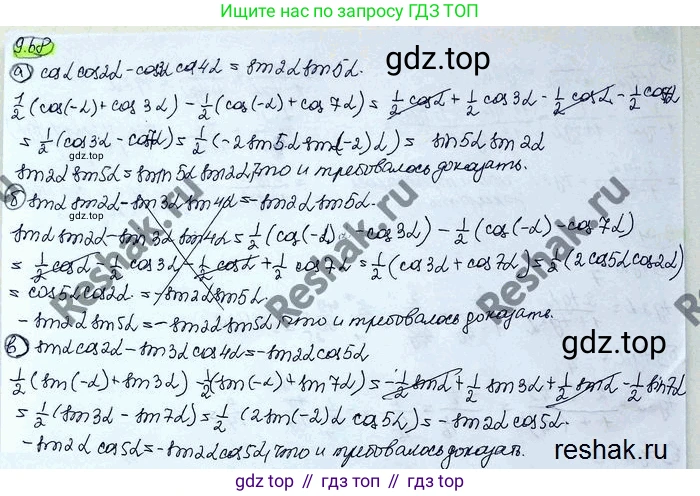 Ищите нас по запросу ГДЗ ТОП
9.68
gdz.top
а) cosα cos2α - cos3α cos4α = sin2α sin5α.
1/2 (cos(-α) + cos 3α) - 1/2 (cos(-α) + cos 7α) = 1/2 cosα + 1/2 cos 3α - 1/2 cosα - 1/2 cos7α
= 1/2 (cos3α - cos7α) = 1/2 (-2 sin5α sin(-2)α) = sin5α sin2α
gdz.top
sin2α sin5α = sin5α sin2α, что и требовалось доказать.
б) sinα sin2α - sin3α sin4α = -sin2α sin5α.
gdz.top
sinα sin2α - sin3α sin4α = 1/2 (cos(-α) - cos3α) - 1/2 (cos(-α) - cos7α)
= 1/2 cosα - 1/2 cos3α - 1/2 cosα + 1/2 cos7α = 1/2 (cos3α + cos7α) = 1/2 (2cos5α cos2α)
= cos5α cos2α = -sin2α sin5α.
- sin2α sin5α = -sin2α sin5α, что и требовалось доказать.
gdz.top
в) sinα cos2α - sin3α cos4α = -sin2α cos5α
1/2 (sin(-α) + sin3α) - 1/2 (sin(-α) + sin7α) = -1/2 sinα + 1/2 sin3α + 1/2 sinα - 1/2 sin7α
= 1/2 (sin3α - sin7α) = 1/2 (2sin(-2)α cos5α) = -sin2α cos5α.
- sin2α cos5α = -sin2α cos5α, что и требовалось доказать.
Reshak.ru
Reshak.ru
Reshak.ru
reshak.ru
gdz.top // gdz.top // gdz.top